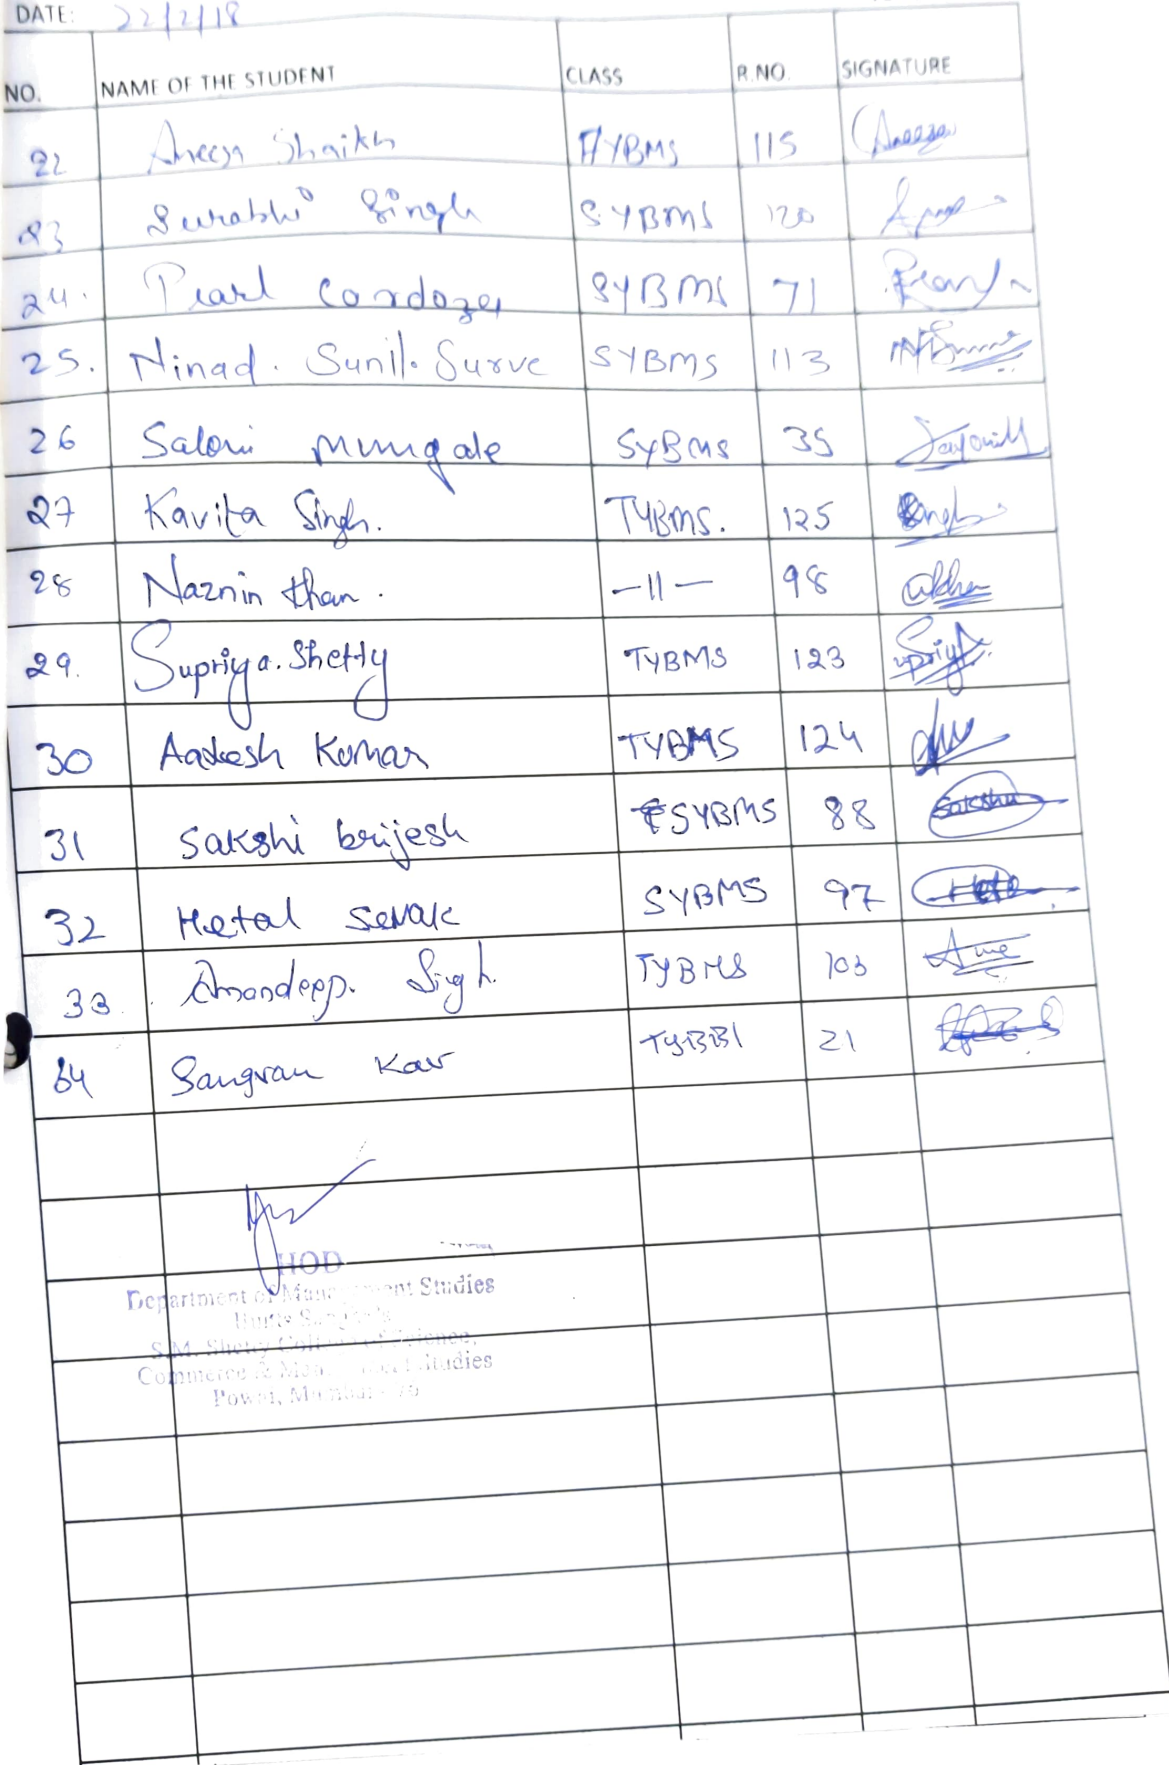 DATE: 22/2/18
NO. NAME OF THE STUDENT CLASS R.NO. SIGNATURE
22 Aneeza Shaikh FYBMS 115 Aneeza
23 Surabhi Singh SYBMS 120
24. Pearl Cardozer SYBMS 71 Pearl
25. Ninad. Sunil. Surve SYBMS 113
26 Saloni Mungale SYBMS 35
27 Kavita Singh. TYBMS. 125 Singh
28 Naznin khan. -11- 98
29. Supriya. Shetty TYBMS 123 Supriya
30 Aakash Kumar TYBMS 124
31 Sakshi brijesh SYBMS 88 Sakshi
32 Hetal Sevak SYBMS 97
33 Amandeep. Singh. TYBMS 103
34 Sangram Kar TYBBI 21
HOD
Department of Management Studies
S.M. Shetty College of Science,
Commerce & Management Studies
Powai, Mumbai - 76